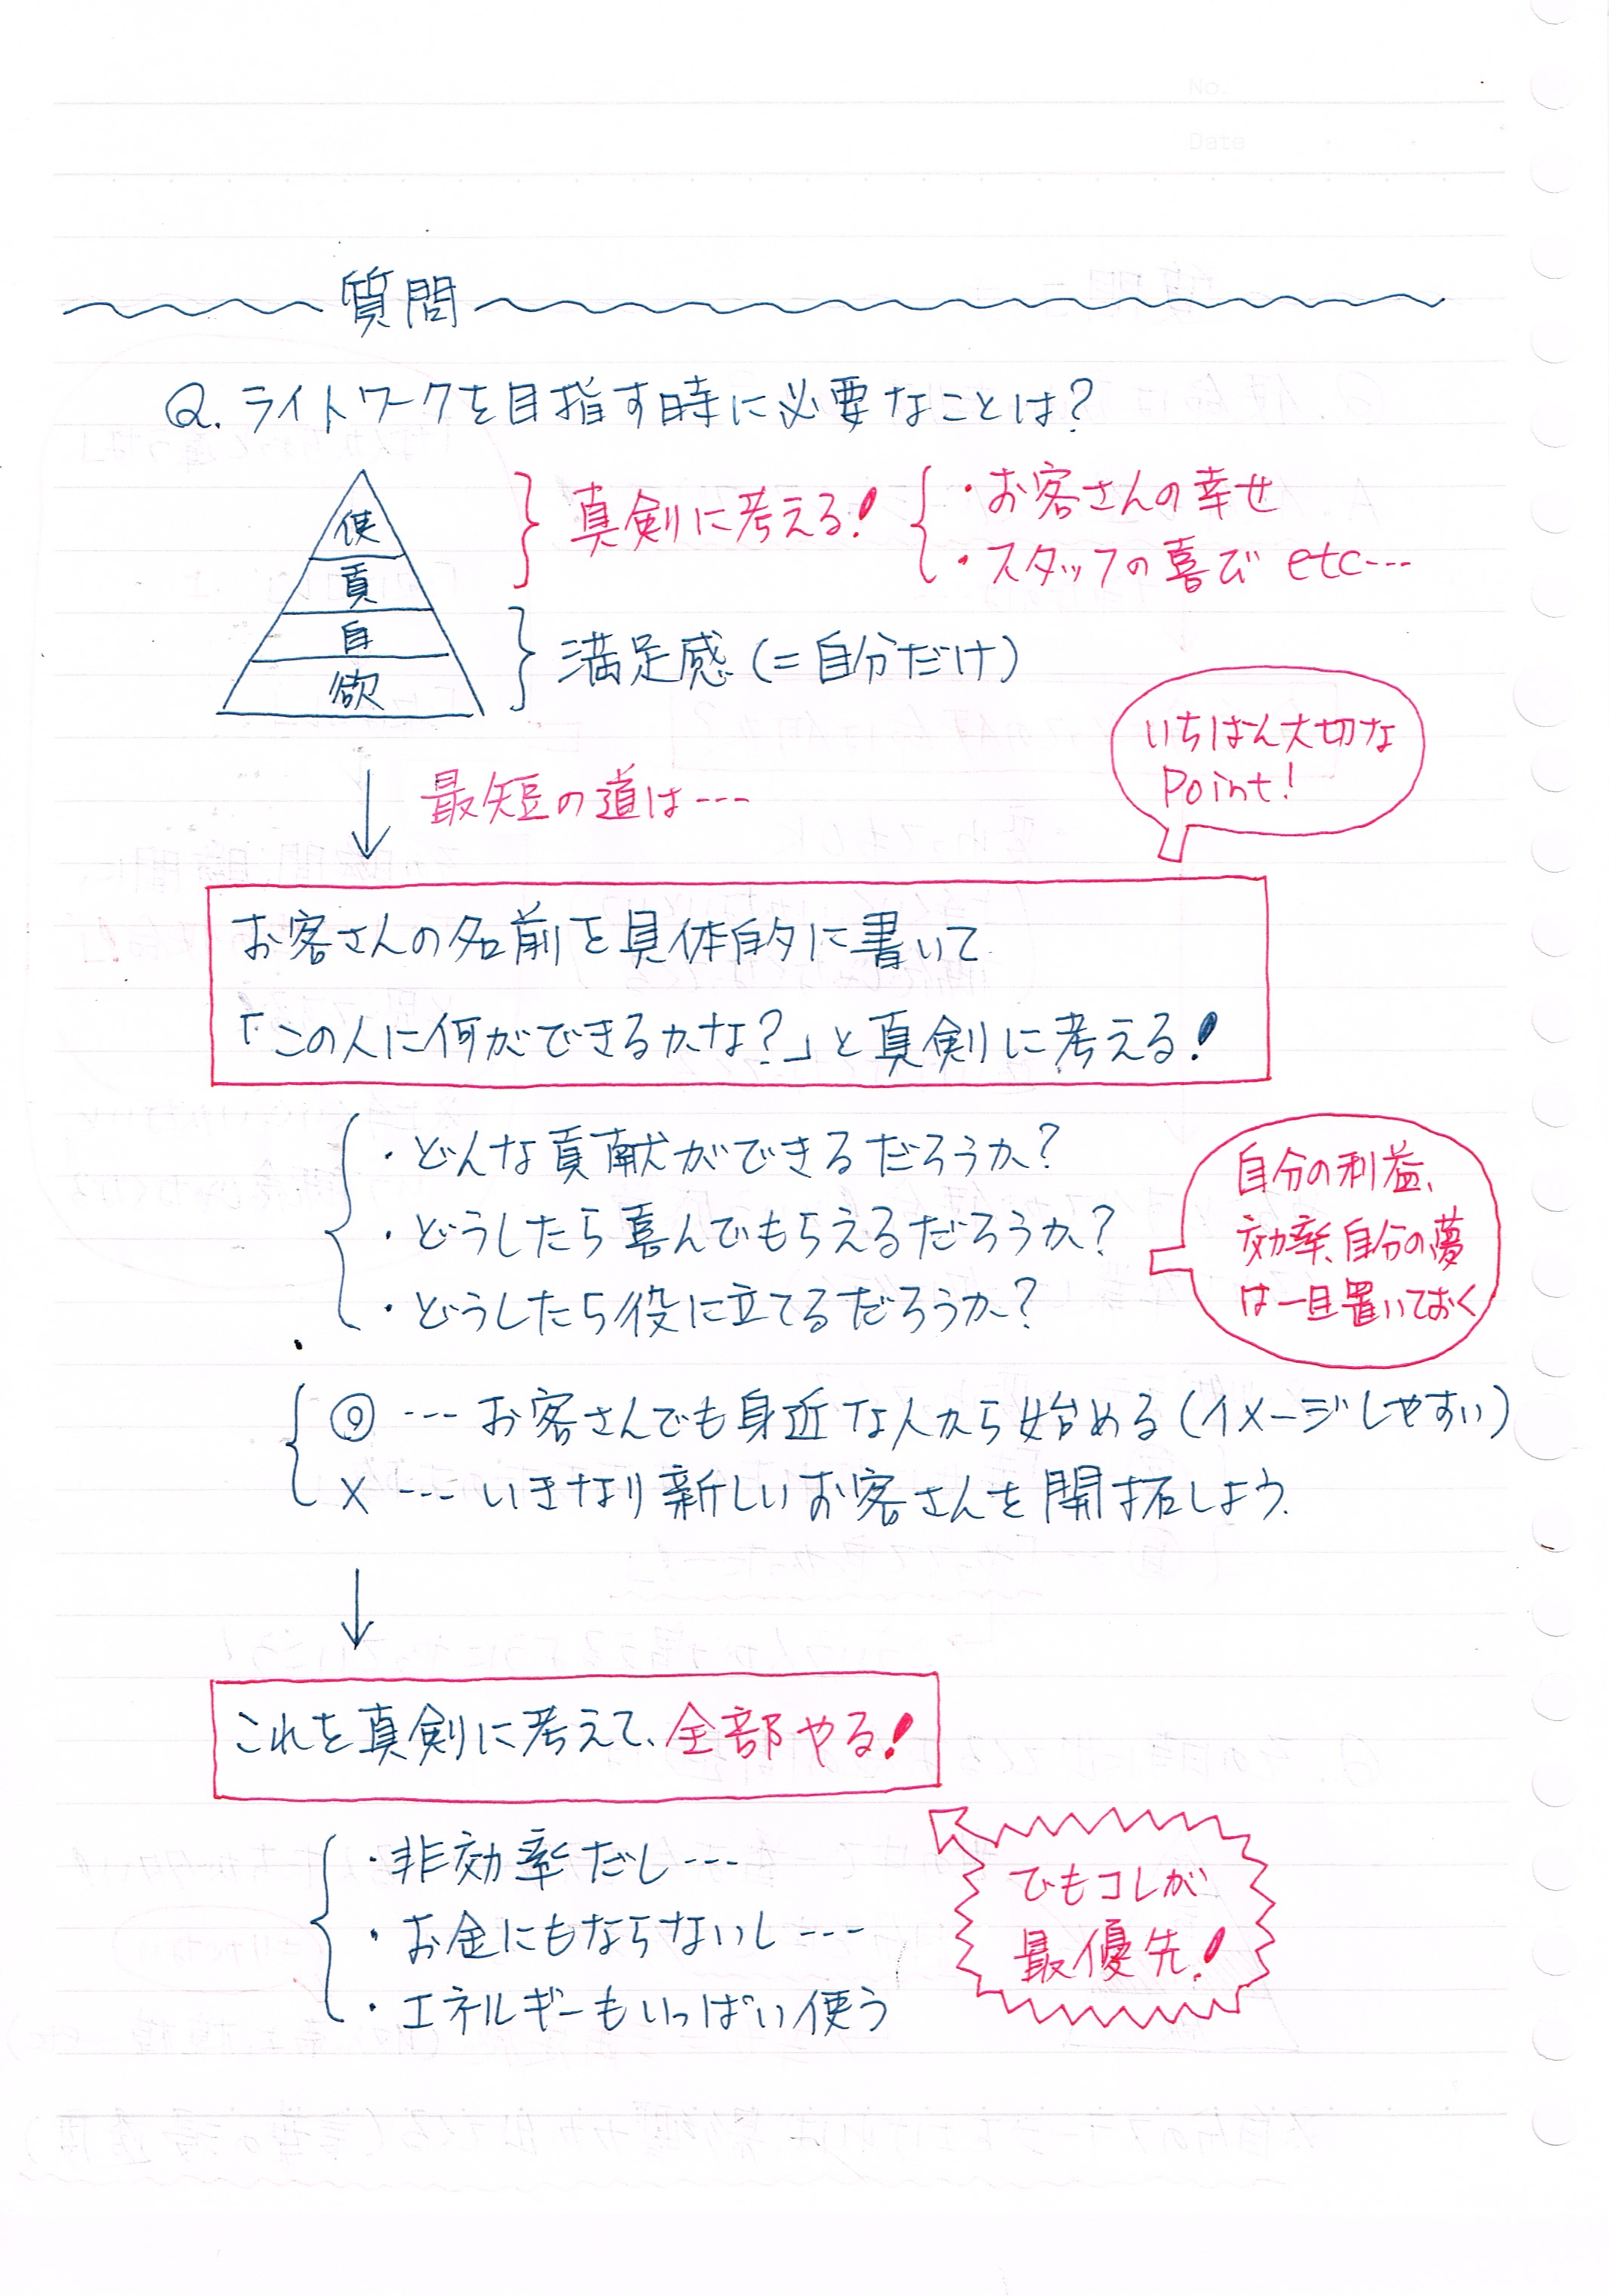 No.
Date
質問
Q. ライトワークを目指す時に必要なことは?
使
貢
自
欲
真剣に考える!
・お客さんの幸せ
・スタッフの喜び etc---
満足感 (=自分だけ)
最短の道は---
いちばん大切な
Point!
お客さんの名前を具体的に書いて
「この人に何ができるかな?」と真剣に考える!
・どんな貢献ができるだろうか?
・どうしたら喜んでもらえるだろうか?
・どうしたら役に立てるだろうか?
自分の利益、
効率、自分の夢
は一旦置いておく
◎ --- お客さんでも身近な人から始める (イメージしやすい)
× --- いきなり新しいお客さんを開拓しよう
これを真剣に考えて、全部やる!
・非効率だし---
・お金にもならないし ---
・エネルギーもいっぱい使う
でもコレが
最優先!